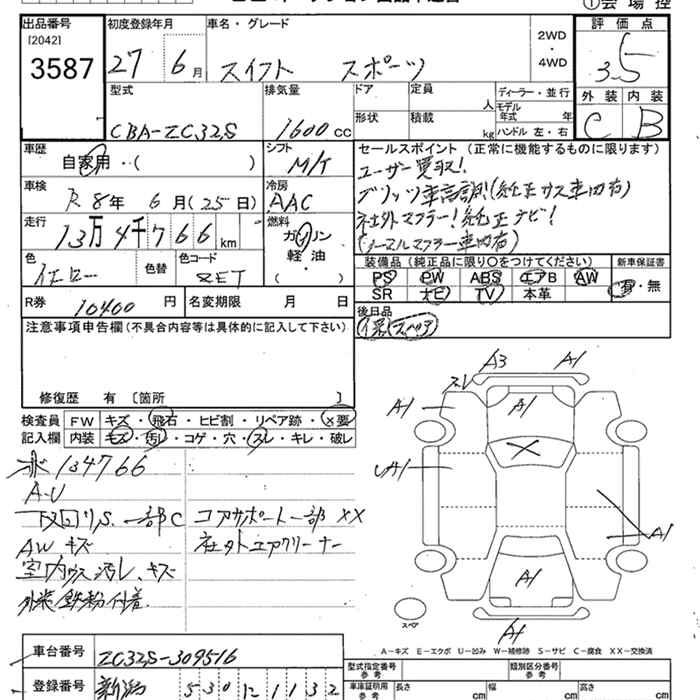 ①会 場 控
出品番号 初度登録年月 車名・グレード 評 価 点
[2042] 2WD
・
4WD
3587 27 6 月 スイフト スポーツ 3.5
型式 排気量 ドア 定員 人 ディーラー・並行 外 装 内 装
モデル年式 年
CBA-ZC32S 1600 cc 形状 積載 kg ハンドル 左・右 C B
車歴 自家用・( ) シフト M/T
セールスポイント (正常に機能するものに限ります)
ユーザー買取!
車検 R 8年 6 月 (25 日) 冷房 AAC
ブリッツ車高調(純正サス車内有)
社外マフラー!純正ナビ!
走行 13万4千766 km 燃料 ガソリン 軽 油 ( )
(ノーマルマフラー車内有)
色 イエロー 色替 色コード ZFT
装備品 (純正品に限り○をつけてください) 新車保証書
PS PW ABS エアB AW 有・無
SR ナビ TV 本革
R券 10400 円 名変期限 月 日
後日品
注意事項申告欄(不具合内容等は具体的に記入して下さい)
修復歴 有 [箇所 ]
検査員 FW キズ・飛石・ヒビ割・リペア跡・×要
記入欄 内装 キズ・汚レ・コゲ・穴・スレ・キレ・破レ
A3 A1
スレ
A1 A1
A1
A1
A1
A1
スペア
134766
A-U
下回りS.一部C コアサポート一部XX
AWキズ 社外エアクリーナー
室内ウス汚レ、キズ
外装鉄粉付着
A-キズ E-エクボ U-凹み W-補修跡 S-サビ C-腐食 XX-交換済
車台番号 ZC32S-309516
型式指定番号 参考 類別区分番号 参考
登録番号 新潟 530 1132
車庫証明用 参考 長さ cm 幅 cm 高さ cm